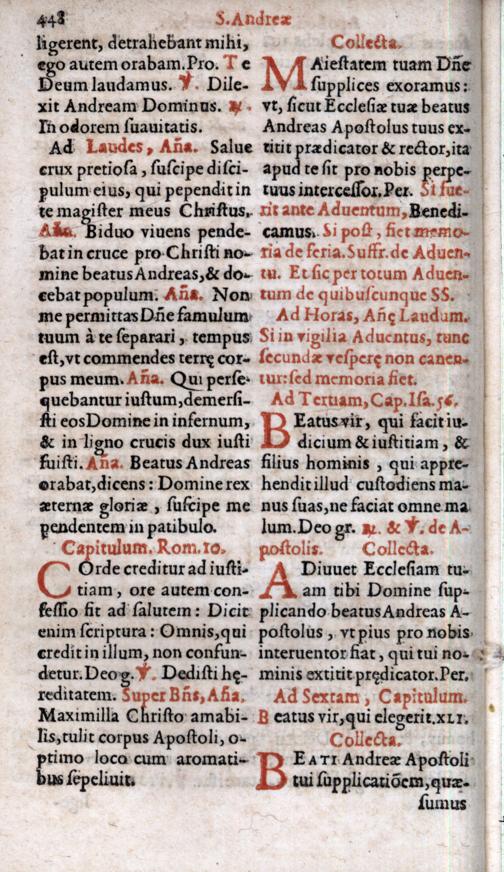 448
S. Andreæ
ligerent, detrahebant mihi,
ego autem orabam. Pro. Te
Deum laudamus. ℣. Dile-
xit Andream Dominus. ℟.
In odorem suauitatis.
Ad Laudes, Aña. Salue
crux pretiosa, suscipe disci-
pulum eius, qui pependit in
te magister meus Christus.
Aña. Biduo viuens pende-
bat in cruce pro Christi no-
mine beatus Andreas, & do-
cebat populum. Aña. Non
me permittas Dñe famulum
tuum à te separari, tempus
est, vt commendes terrę cor-
pus meum. Aña. Qui perse-
quebantur iustum, demersi-
sti eos Domine in infernum,
& in ligno crucis dux iusti
fuisti. Aña. Beatus Andreas
orabat, dicens: Domine rex
æternæ gloriæ, suscipe me
pendentem in patibulo.
Capitulum. Rom. 10.
COrde creditur ad iusti-
tiam, ore autem con-
fessio fit ad salutem: Dicit
enim scriptura: Omnis, qui
credit in illum, non confun-
detur. Deo g. ℣. Dedisti hę-
reditatem. Super Bñs, Aña.
Maximilla Christo amabi-
lis, tulit corpus Apostoli, o-
ptimo loco cum aromati-
bus sepeliuit.
Collecta.
MAiestatem tuam Dñe
supplices exoramus:
vt, sicut Ecclesiæ tuæ beatus
Andreas Apostolus tuus ex-
titit prædicator & rector, ita
apud te sit pro nobis perpe-
tuus intercessor. Per. Si fue-
rit ante Aduentum, Benedi-
camus. Si post, fiet memo-
ria de feria. Suffr. de Aduen-
tu. Et sic per totum Aduen-
tum de quibuscunque SS.
Ad Horas, Añę Laudum.
Si in vigilia Aduentus, tunc
secundæ vesperę non canen-
tur: sed memoria fiet.
Ad Tertiam, Cap. Isa. 56.
BEatus vir, qui facit iu-
dicium & iustitiam, &
filius hominis, qui appre-
hendit illud custodiens ma-
nus suas, ne faciat omne ma
lum. Deo gr. ℟. & ℣. de A-
postolis. Collecta.
ADiuuet Ecclesiam tu-
am tibi Domine sup-
plicando beatus Andreas A-
postolus, vt pius pro nobis
interuentor fiat, qui tui no-
minis extitit prędicator. Per.
Ad Sextam, Capitulum.
Beatus vir, qui elegerit. XLI.
Collecta.
BEATI Andreæ Apostoli
tui supplicatiõem, quæ-
sumus